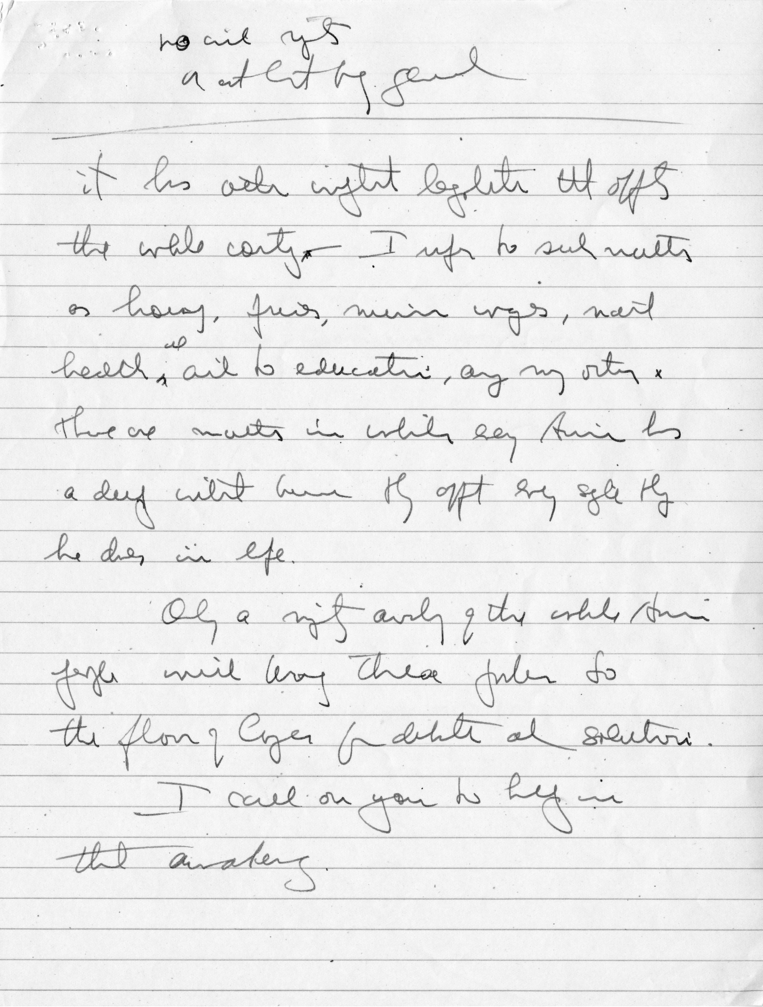 no civil rights
or anti lynching general
it has other important legislation that affects
the whole country. I refer to such matters
as housing, prices, minimum wages,
health, and aid to education, among many other
There are matters in which every American has
a deep interest because they affect every single thing
he does in life.
Only a mighty awakening of the whole American
people will bring these problems to
the floor of Congress for debate and solution.
I call on you to help in
that awakening.